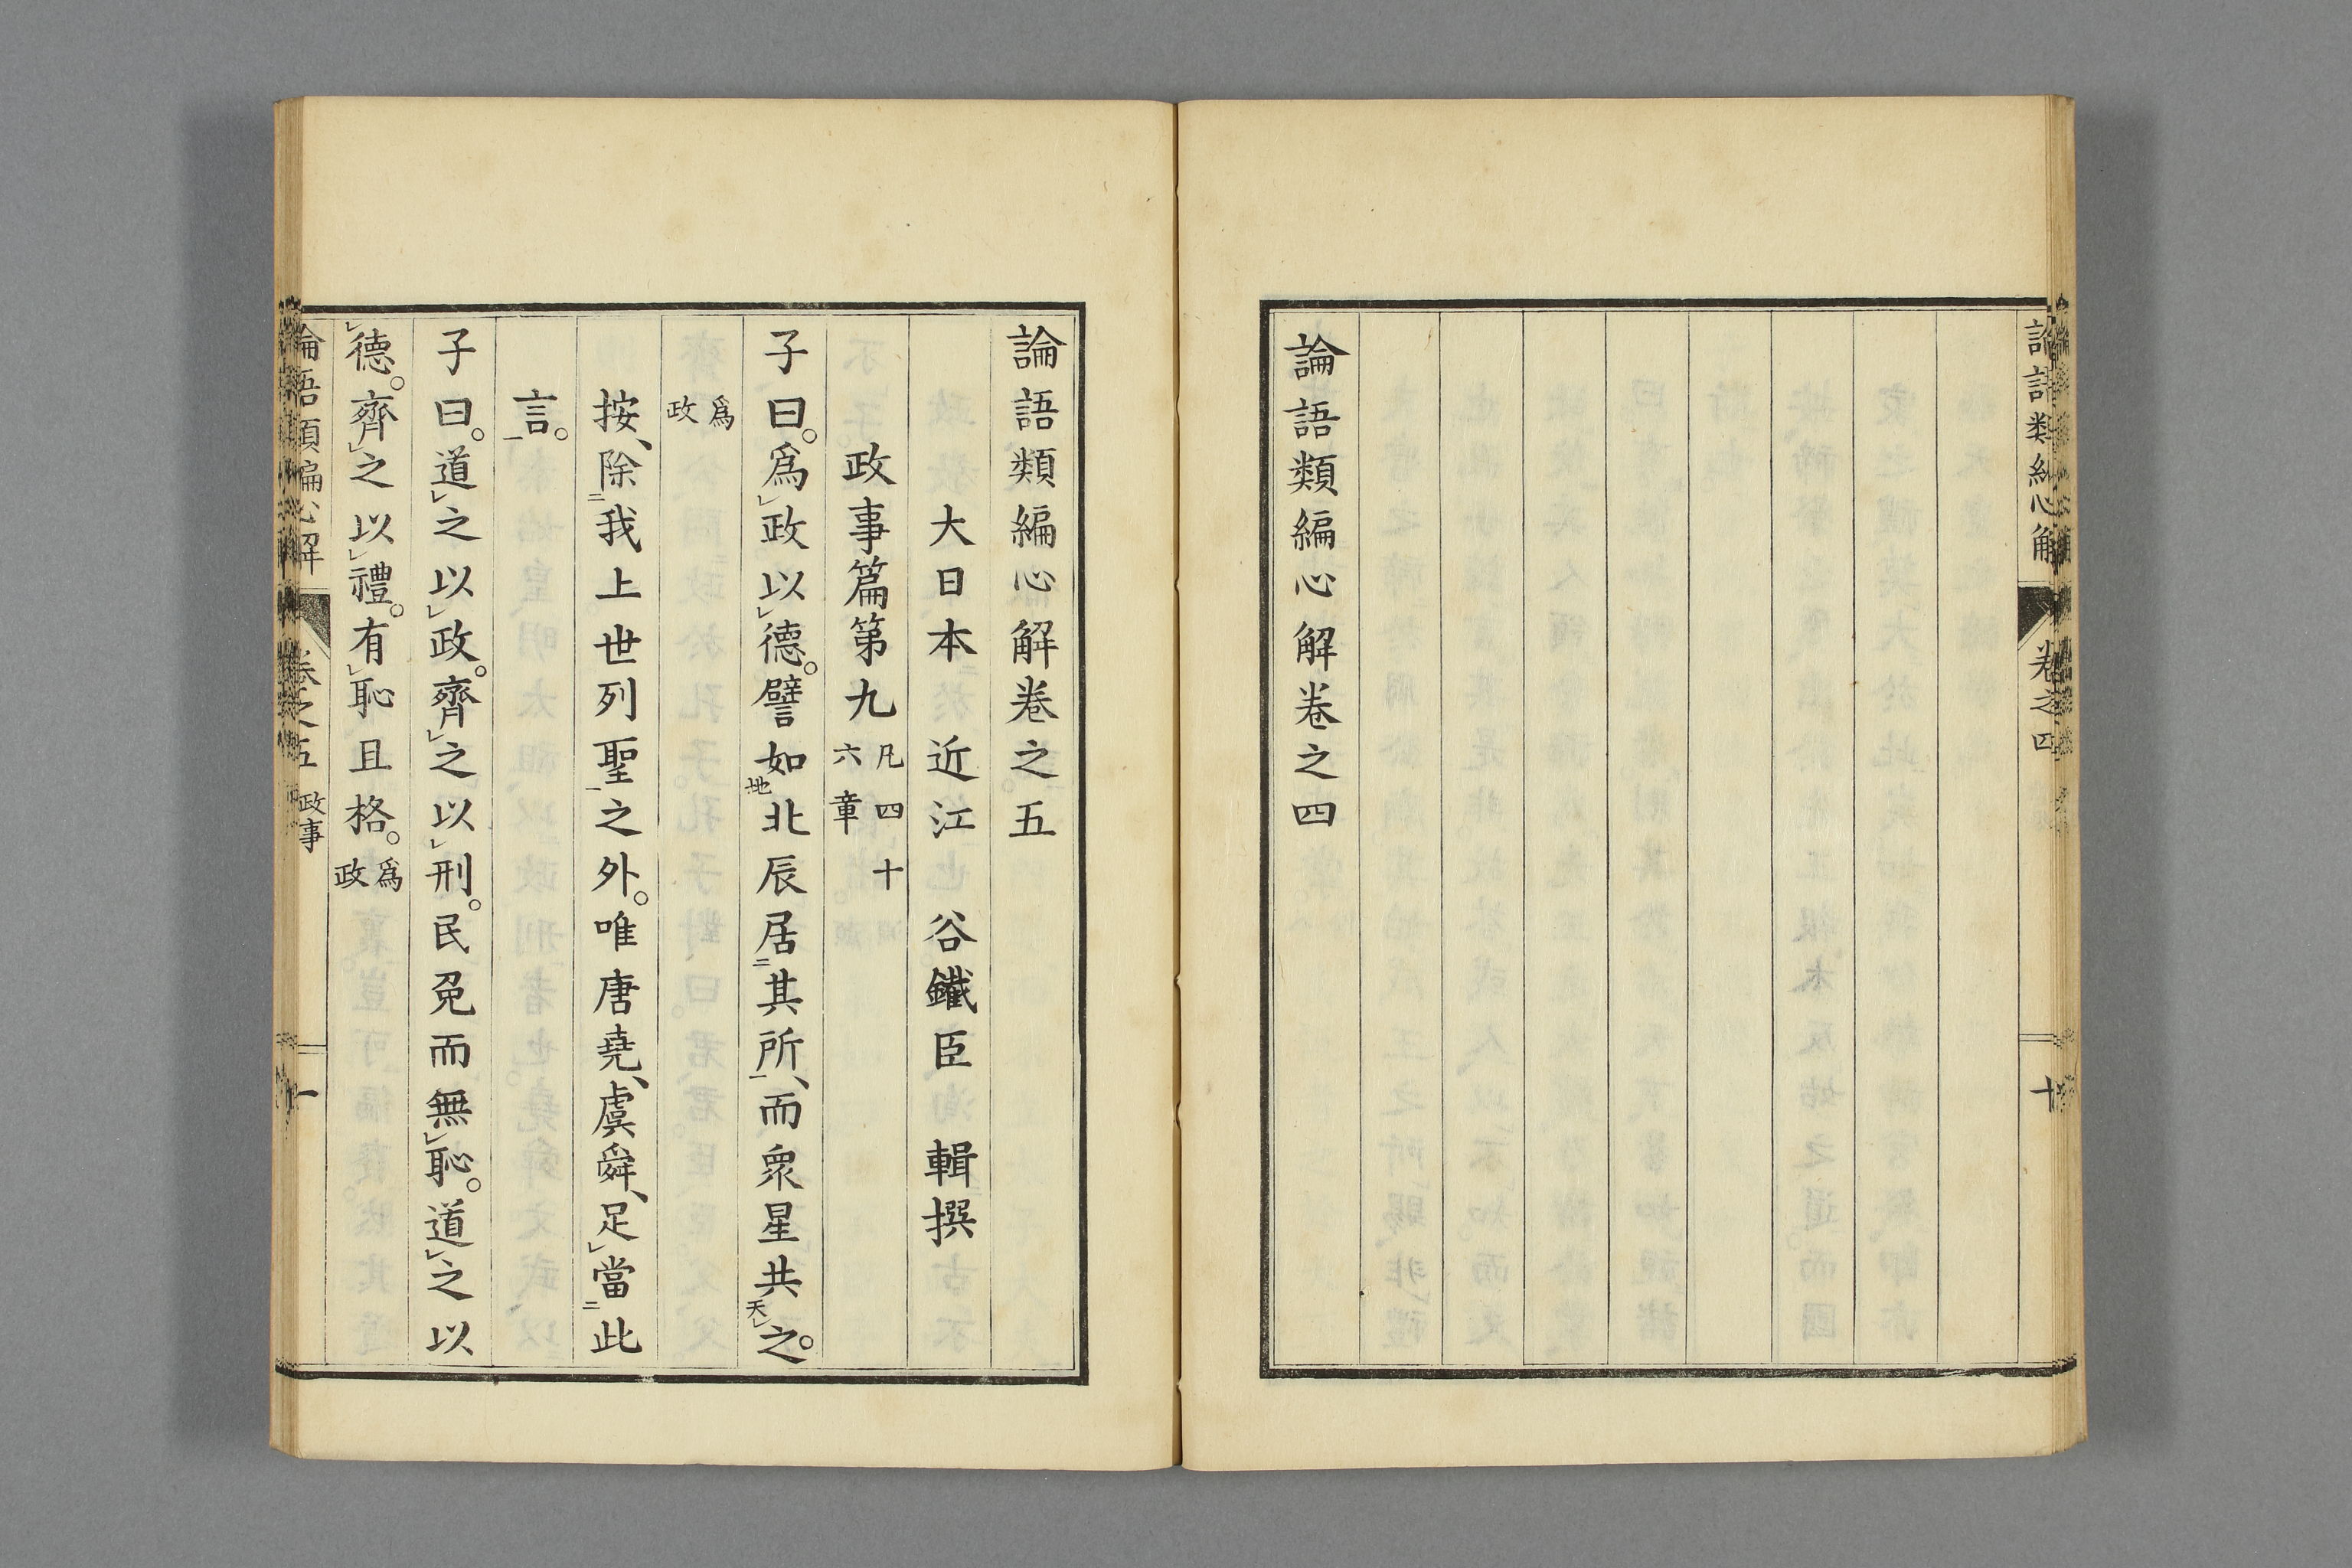 論語類編心解 卷之四 十
論語類編心解卷之四
論語類編心解卷之五
大日本 近江 谷鐵臣 輯撰
政事篇第九 凡四十六章
子曰。爲㆑政以㆑德。譬如㆞北辰居㆓其所㆒、而衆星共㆝㆑之。
爲政
按、除㆓我上世列聖㆒之外。唯唐堯、虞舜、足㆑當㆓此
言㆒。
子曰。道㆑之以㆑政。齊㆑之以㆑刑。民免而無㆑恥。道㆑之以
㆑德。齊㆑之以㆑禮。有㆑恥且格。爲政
論語類編心解 卷之五 政事 一